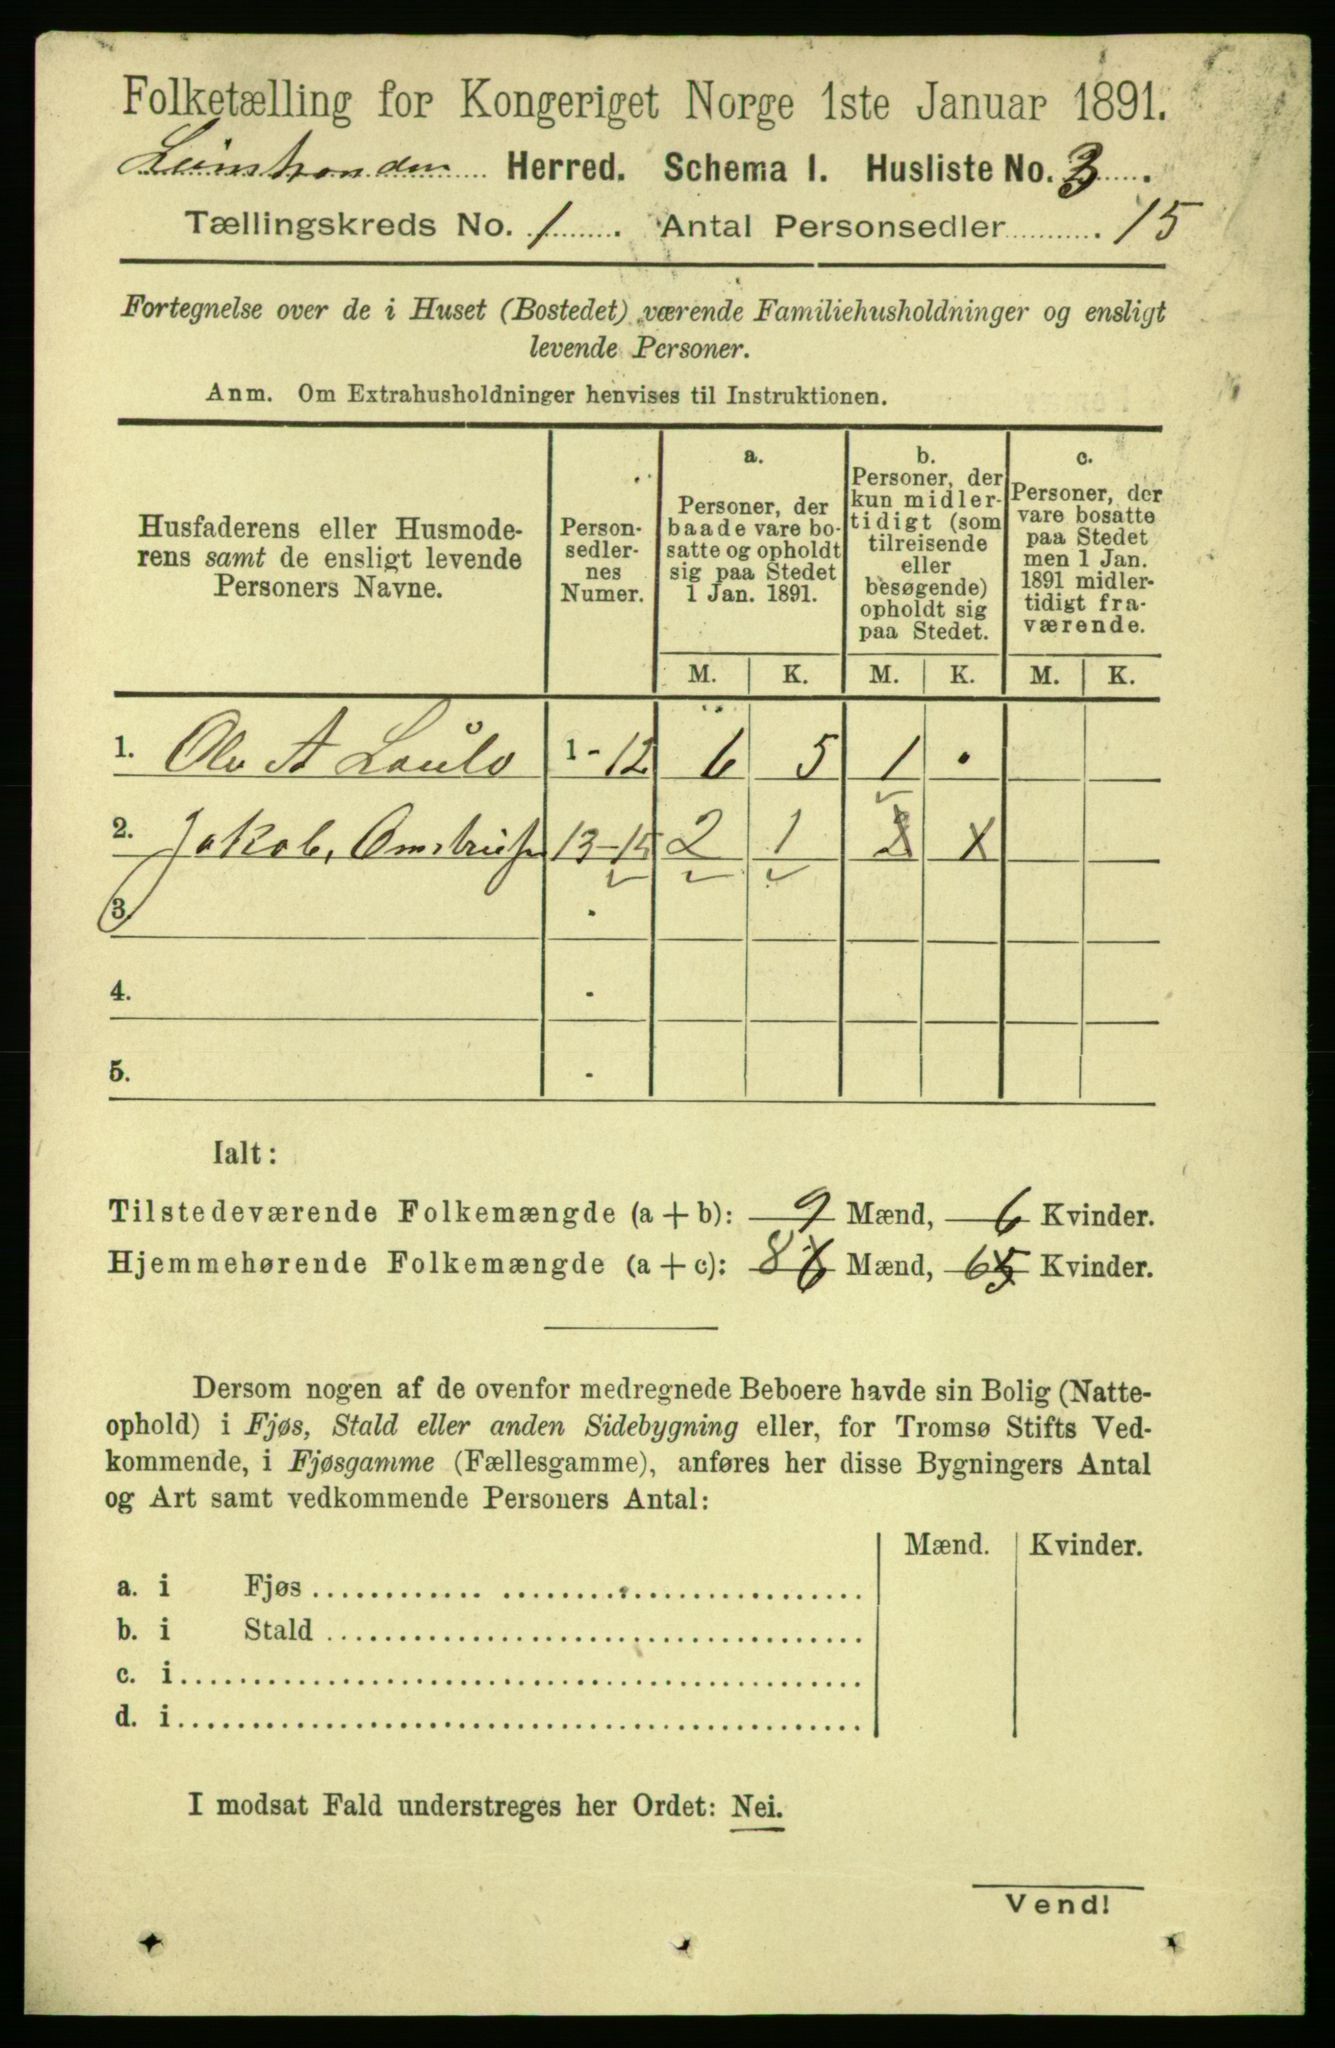 Folketælling for Kongeriget Norge 1ste Januar 1891.
Leinstranden Herred. Schema I. Husliste No. 3.
Tællingskreds No. 1. Antal Personsedler 15
Fortegnelse over de i Huset (Bostedet) værende Familiehusholdninger og ensligt
levende Personer.
Anm. Om Extrahusholdninger henvises til Instruktionen.
Husfaderens eller Husmode-
rens samt de ensligt levende
Personers Navne.
Person-
sedler-
nes
Numer.
a.
Personer, der
baade vare bo-
satte og opholdt
sig paa Stedet
1 Jan. 1891.
b.
Personer, der
kun midler-
tidigt (som
tilreisende
eller
besøgende)
opholdt sig
paa Stedet.
c.
Personer, der
vare bosatte
paa Stedet
men 1 Jan.
1891 midler-
tidigt fra-
værende.
M. K. M. K. M. K.
1. Ole A 1 - 12 6 5 1 .
2. Jakob 13-15 2 1
3.
4.
5.
Ialt:
Tilstedeværende Folkemængde (a + b): 9 Mænd, 6 Kvinder.
Hjemmehørende Folkemængde (a + c): 8 Mænd, 6 Kvinder.
Dersom nogen af de ovenfor medregnede Beboere havde sin Bolig (Natte-
ophold) i Fjøs, Stald eller anden Sidebygning eller, for Tromsø Stifts Ved-
kommende, i Fjøsgamme (Fællesgamme), anføres her disse Bygningers Antal
og Art samt vedkommende Personers Antal:
Mænd. Kvinder.
a. i Fjøs
b. i Stald
c. i
d. i
I modsat Fald understreges her Ordet: Nei.
Vend!